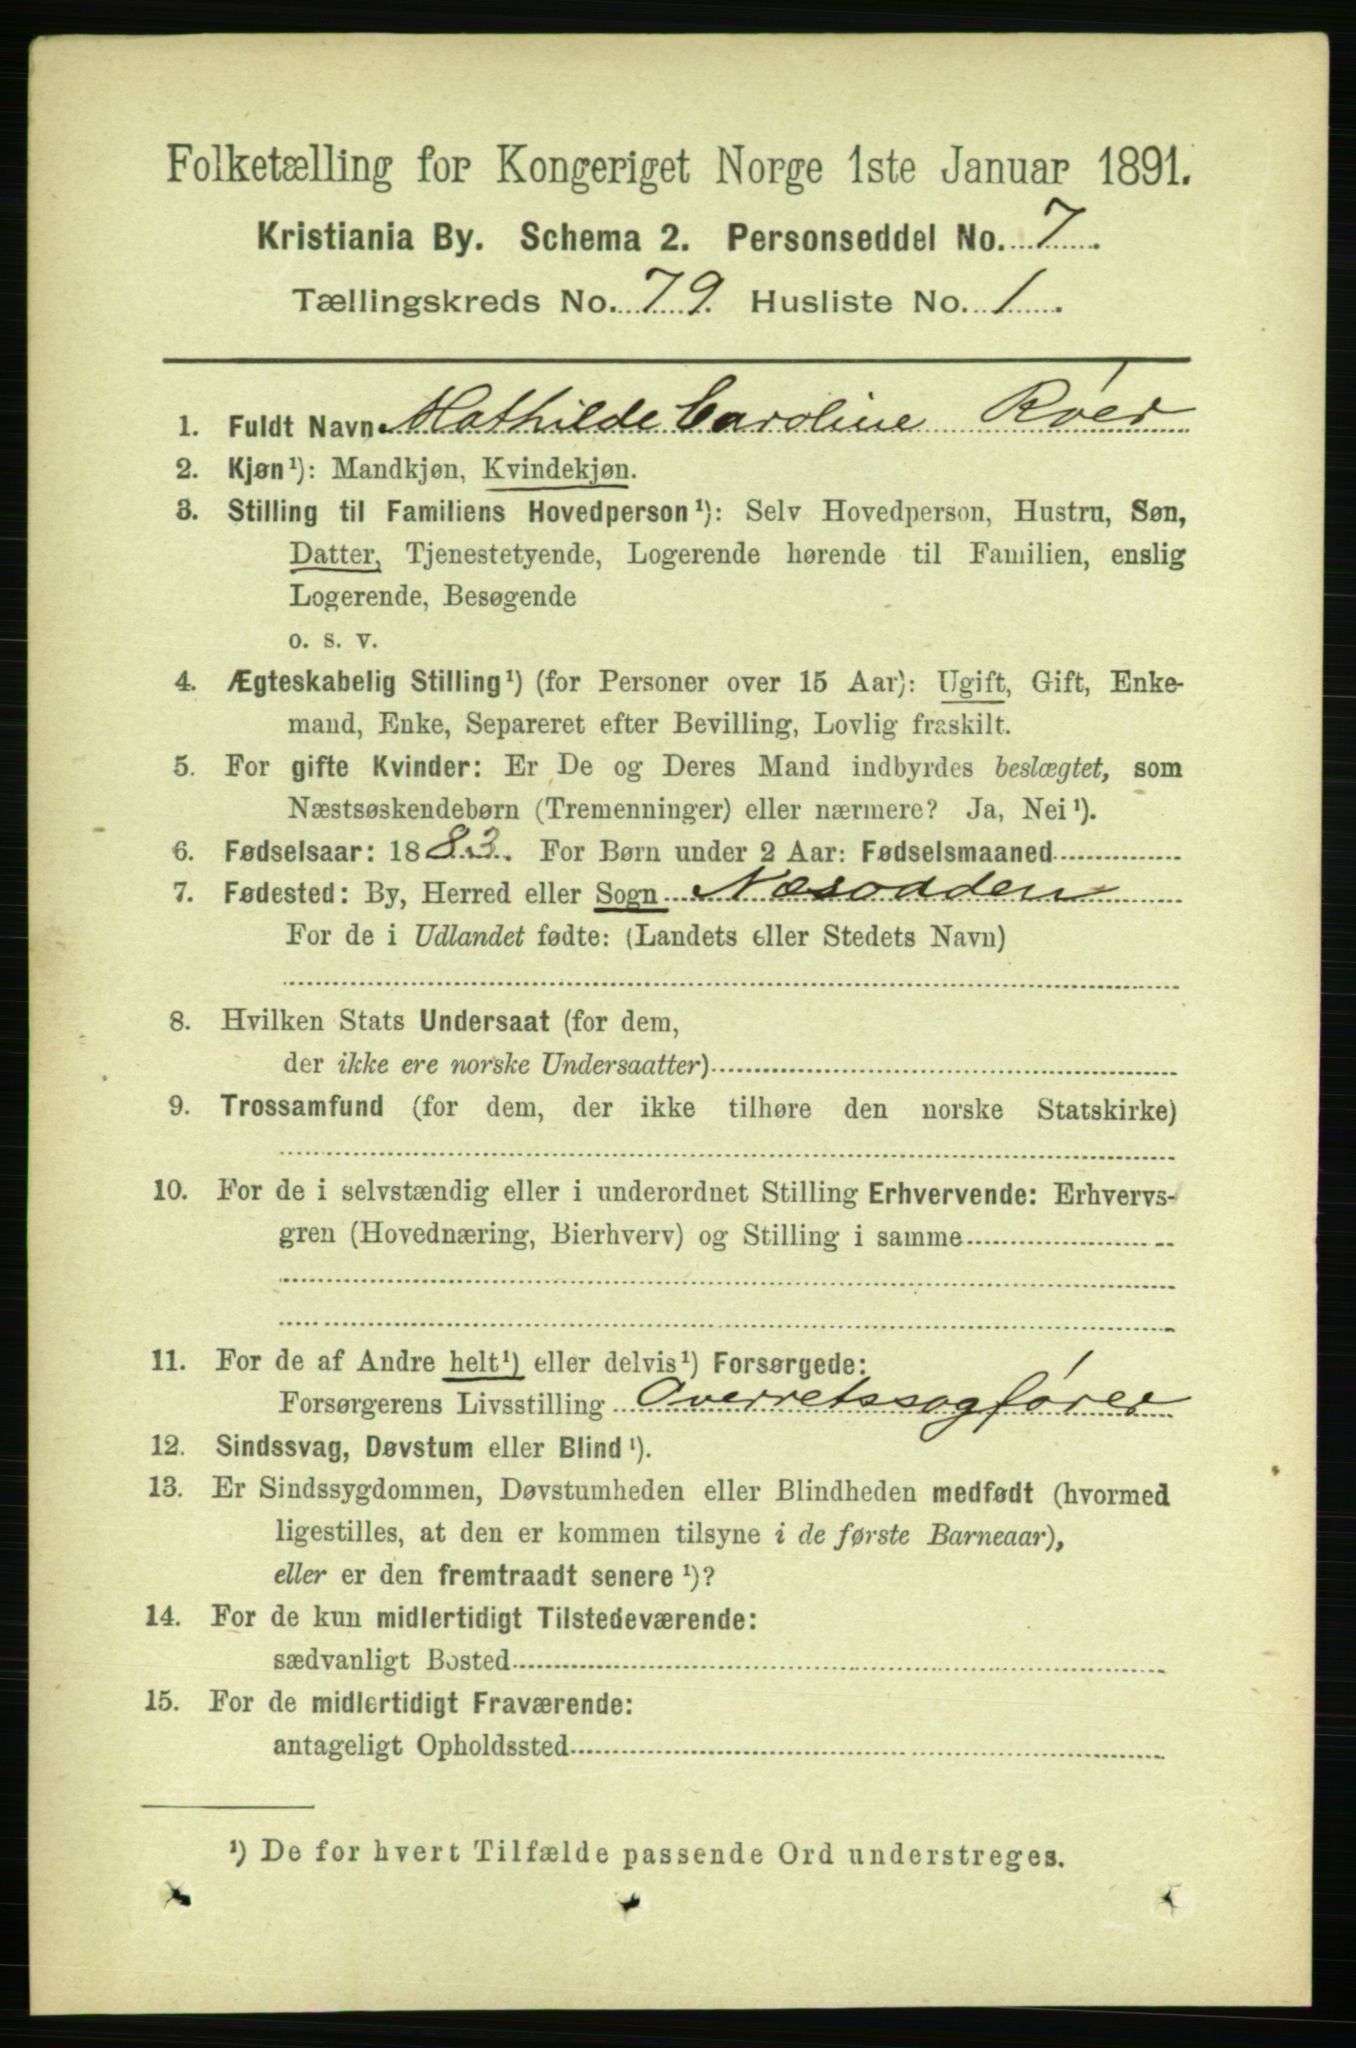 Folketælling for Kongeriget Norge 1ste Januar 1891.
Kristiania By. Schema 2. Personseddel No. 7.
Tællingskreds No. 79. Husliste No. 1.
1. Fuldt Navn Mathilde Caroline Róer
2. Kjøn¹): Mandkjøn, Kvindekjøn.
3. Stilling til Familiens Hovedperson¹): Selv Hovedperson, Hustru, Søn,
Datter, Tjenestetyende, Logerende hørende til Familien, enslig
Logerende, Besøgende
o. s. v.
4. Ægteskabelig Stilling¹) (for Personer over 15 Aar): Ugift, Gift, Enke-
mand, Enke, Separeret efter Bevilling, Lovlig fraskilt.
5. For gifte Kvinder: Er De og Deres Mand indbyrdes beslægtet, som
Næstsøskendebørn (Tremenninger) eller nærmere? Ja, Nei¹).
6. Fødselsaar: 1883. For Børn under 2 Aar: Fødselsmaaned
7. Fødested: By, Herred eller Sogn Næsodden
For de i Udlandet fødte: (Landets eller Stedets Navn)
8. Hvilken Stats Undersaat (for dem,
der ikke ere norske Undersaatter)
9. Trossamfund (for dem, der ikke tilhøre den norske Statskirke)
10. For de i selvstændig eller i underordnet Stilling Erhvervende: Erhvervs-
gren (Hovednæring, Bierhverv) og Stilling i samme
11. For de af Andre helt¹) eller delvis¹) Forsørgede:
Forsørgerens Livsstilling Overretssagfører
12. Sindssvag, Døvstum eller Blind¹).
13. Er Sindssygdommen, Døvstumheden eller Blindheden medfødt (hvormed
ligestilles, at den er kommen tilsyne i de første Barneaar),
eller er den fremtraadt senere¹)?
14. For de kun midlertidigt Tilstedeværende:
sædvanligt Bosted
15. For de midlertidigt Fraværende:
antageligt Opholdssted
¹) De for hvert Tilfælde passende Ord understreges.